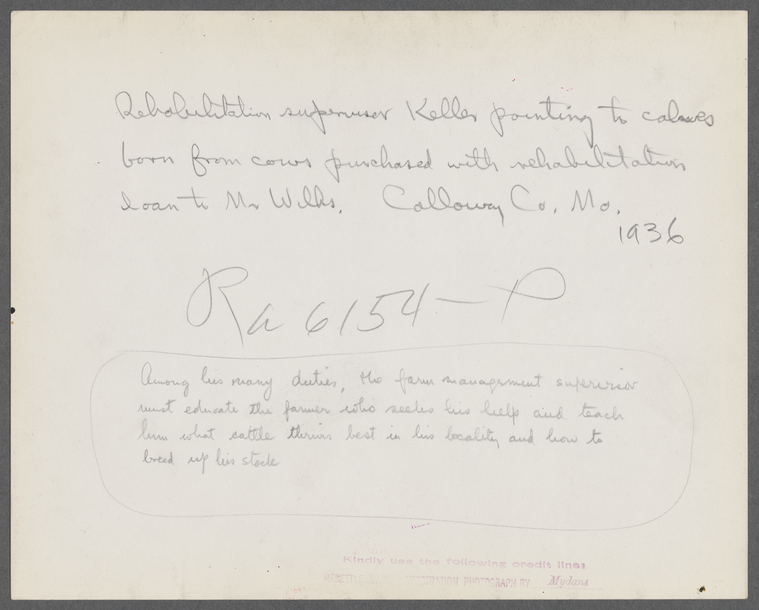 Rehabilitation supervisor Keller pointing to calves
born from cows purchased with rehabilitation
loan to Mr Wilks. Calloway Co. Mo.
1936
Ra 6154-P
Among his many duties, the farm management supervisor
must educate the farmer who seeks his help and teach
him what cattle thrives best in his locality and how to
breed up his stock
Kindly use the following credit line:
PHOTOGRAPH BY Mydans